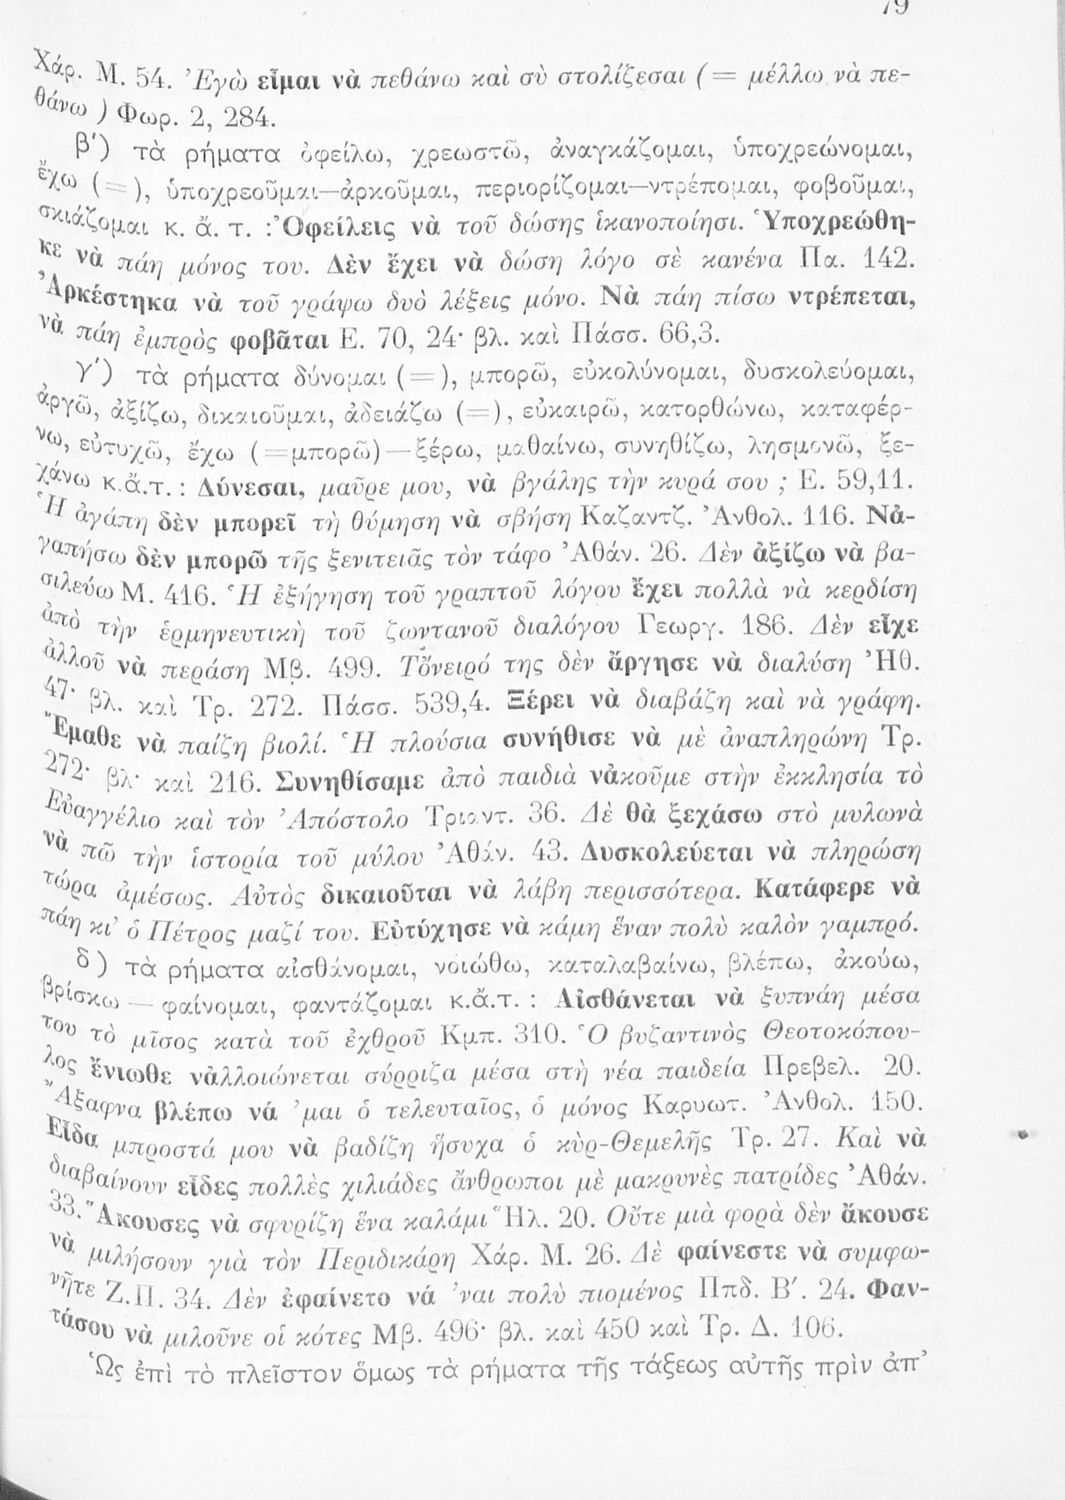 79
Χάρ. Μ. 54. Ἐγὼ εἶμαι νὰ πεθάνω καὶ σὺ στολίζεσαι (= μέλλω νὰ πε-
θάνω ) Φωρ. 2, 284.
β') τὰ ρήματα ὀφείλω, χρεωστῶ, ἀναγκάζομαι, ὑποχρεώνομαι,
ἔχω (=), ὑποχρεοῦμαι—ἀρκοῦμαι, περιορίζομαι—ντρέπομαι, φοβοῦμαι,
σκιάζομαι κ. ἄ. τ. : Ὀφείλεις νὰ τοῦ δώσης ἱκανοποίησι. Ὑποχρεώθη-
κε νὰ πάη μόνος του. Δὲν ἔχει νὰ δώση λόγο σὲ κανένα Πα. 142.
Ἀρκέστηκα νὰ τοῦ γράψω δυὸ λέξεις μόνο. Νὰ πάη πίσω ντρέπεται,
νὰ πάη ἐμπρὸς φοβᾶται Ε. 70, 24· βλ. καὶ Πάσσ. 66,3.
γ') τὰ ρήματα δύνομαι (=), μπορῶ, εὐκολύνομαι, δυσκολεύομαι,
ἀργῶ, ἀξίζω, δικαιοῦμαι, ἀδειάζω (=), εὐκαιρῶ, κατορθώνω, καταφέρ-
νω, εὐτυχῶ, ἔχω (=μπορῶ)—ξέρω, μαθαίνω, συνηθίζω, λησμονῶ, ξε-
χάνω κ.ἄ.τ. : Δύνεσαι, μαῦρε μου, νὰ βγάλης τὴν κυρά σου ; Ε. 59,11.
Ἡ ἀγάπη δὲν μπορεῖ τὴ θύμηση νὰ σβήση Καζαντζ. Ἀνθολ. 116. Νἀ-
γαπήσω δὲν μπορῶ τῆς ξενιτειᾶς τὸν τάφο Ἀθάν. 26. Δὲν ἀξίζω νὰ βα-
σιλεύω Μ. 416. Ἡ ἐξήγηση τοῦ γραπτοῦ λόγου ἔχει πολλὰ νὰ κερδίση
ἀπὸ τὴν ἑρμηνευτικὴ τοῦ ζωντανοῦ διαλόγου Γεωργ. 186. Δὲν εἶχε
ἀλλοῦ νὰ περάση Μβ. 499. Τὄνειρό της δὲν ἄργησε νὰ διαλύση Ἠθ.
47· βλ. καὶ Τρ. 272. Πάσσ. 539,4. Ξέρει νὰ διαβάζη καὶ νὰ γράφη.
Ἔμαθε νὰ παίζη βιολί. Ἡ πλούσια συνήθισε νὰ μὲ ἀναπληρώνη Τρ.
272· βλ· καὶ 216. Συνηθίσαμε ἀπὸ παιδιὰ νἀκοῦμε στὴν ἐκκλησία τὸ
Εὐαγγέλιο καὶ τὸν Ἀπόστολο Τριαντ. 36. Δὲ θὰ ξεχάσω στὸ μυλωνὰ
νὰ πῶ τὴν ἱστορία τοῦ μύλου Ἀθάν. 43. Δυσκολεύεται νὰ πληρώση
τώρα ἀμέσως. Αὐτὸς δικαιοῦται νὰ λάβη περισσότερα. Κατάφερε νὰ
πάη κι' ὁ Πέτρος μαζί του. Εὐτύχησε νὰ κάμη ἕναν πολὺ καλὸν γαμπρό.
δ) τὰ ρήματα αἰσθάνομαι, νοιώθω, καταλαβαίνω, βλέπω, ἀκούω,
βρίσκω — φαίνομαι, φαντάζομαι κ.ἄ.τ. : Αἰσθάνεται νὰ ξυπνάη μέσα
του τὸ μῖσος κατὰ τοῦ ἐχθροῦ Κμπ. 310. Ὁ βυζαντινὸς Θεοτοκόπου-
λος ἔνιωθε νἀλλοιώνεται σύρριζα μέσα στὴ νέα παιδεία Πρεβελ. 20.
Ἄξαφνα βλέπω νά 'μαι ὁ τελευταῖος, ὁ μόνος Καρυωτ. Ἀνθολ. 150.
Εἶδα μπροστά μου νὰ βαδίζη ἥσυχα ὁ κὺρ-Θεμελῆς Τρ. 27. Καὶ νὰ
διαβαίνουν εἶδες πολλὲς χιλιάδες ἄνθρωποι μὲ μακρυνὲς πατρίδες Ἀθάν.
33. Ἄκουσες νὰ σφυρίζη ἕνα καλάμι Ἥλ. 20. Οὔτε μιὰ φορὰ δὲν ἄκουσε
νὰ μιλήσουν γιὰ τὸν Περιδικάρη Χάρ. Μ. 26. Δὲ φαίνεστε νὰ συμφω-
νῆτε Ζ.Π. 34. Δὲν ἐφαίνετο νά 'ναι πολὺ πιομένος Ππδ. Β'. 24. Φαν-
τάσου νὰ μιλοῦνε οἱ κότες Μβ. 496· βλ. καὶ 450 καὶ Τρ. Δ. 106.
Ὡς ἐπὶ τὸ πλεῖστον ὅμως τὰ ρήματα τῆς τάξεως αὐτῆς πρὶν ἀπ'